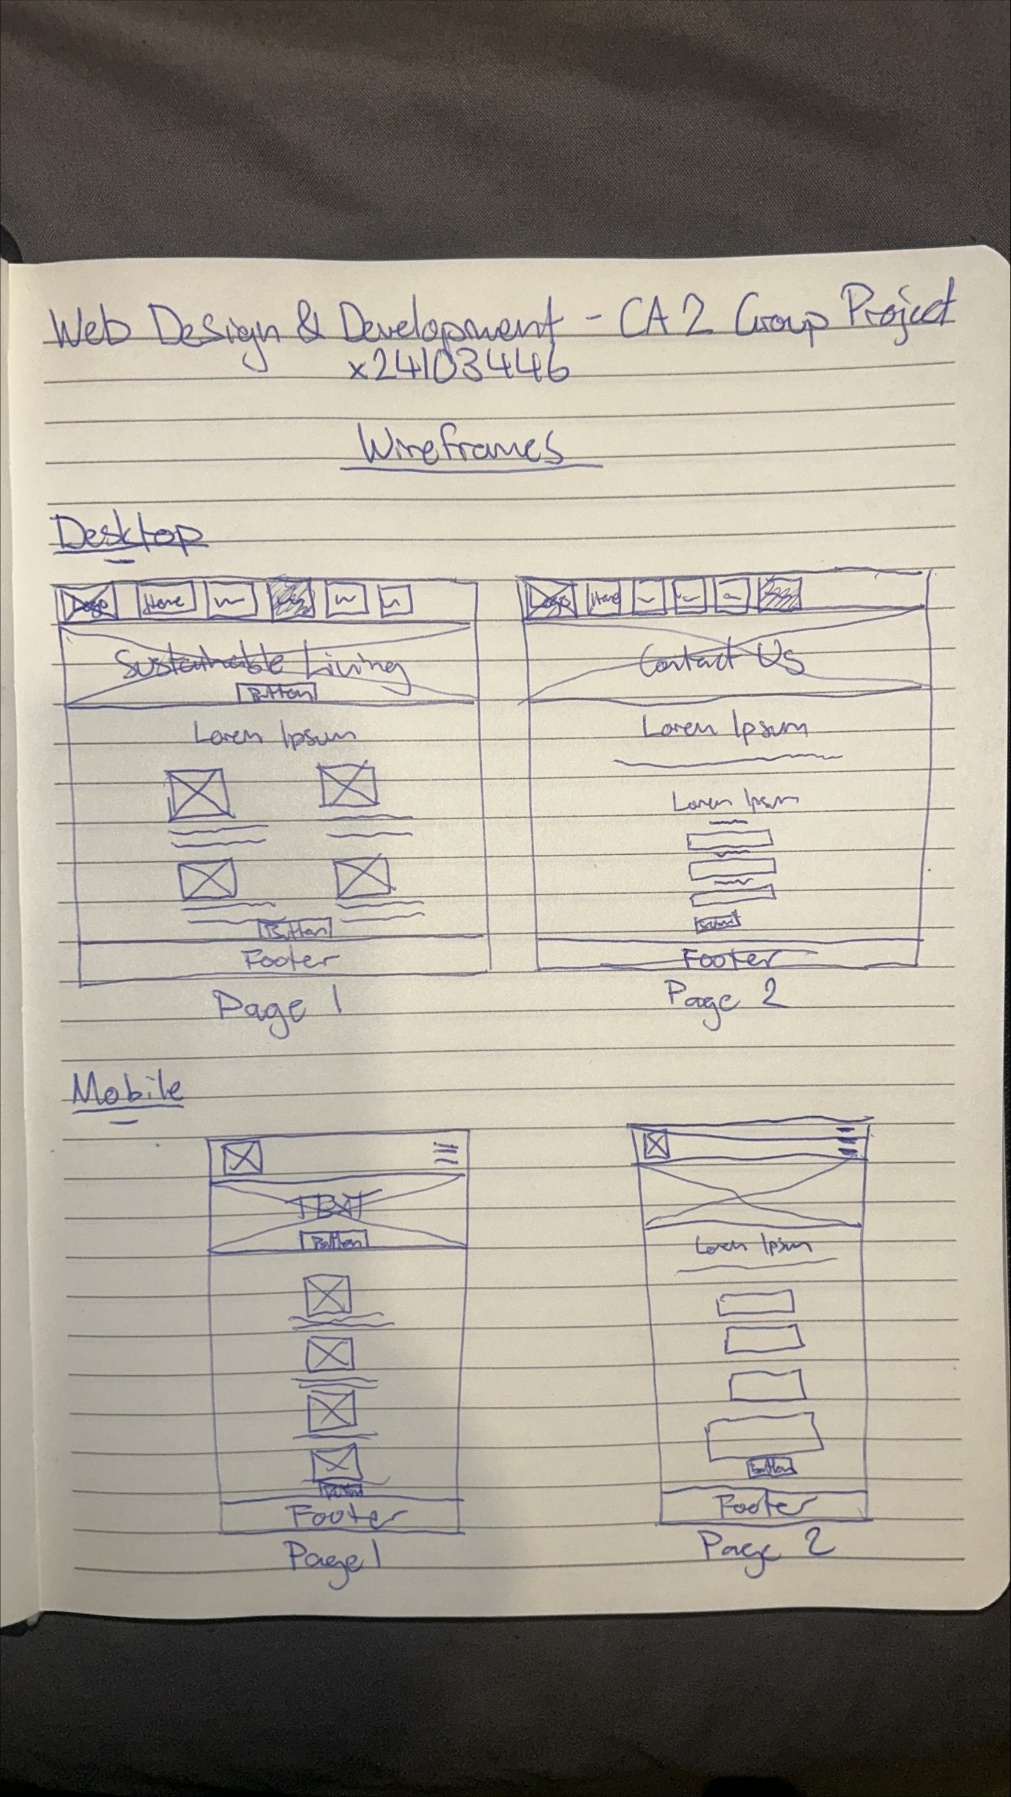 Web Design & Development - CA2 Group Project
x24103446
Wireframes
Desktop
Logo Home
Sustainable Living
Button
Lorem Ipsum
Button
Footer
Page 1
Logo Home
Contact Us
Lorem Ipsum
Lorem Ipsum
Submit
Footer
Page 2
Mobile
TEXT
Button
Button
Footer
Page 1
Lorem Ipsum
Button
Footer
Page 2